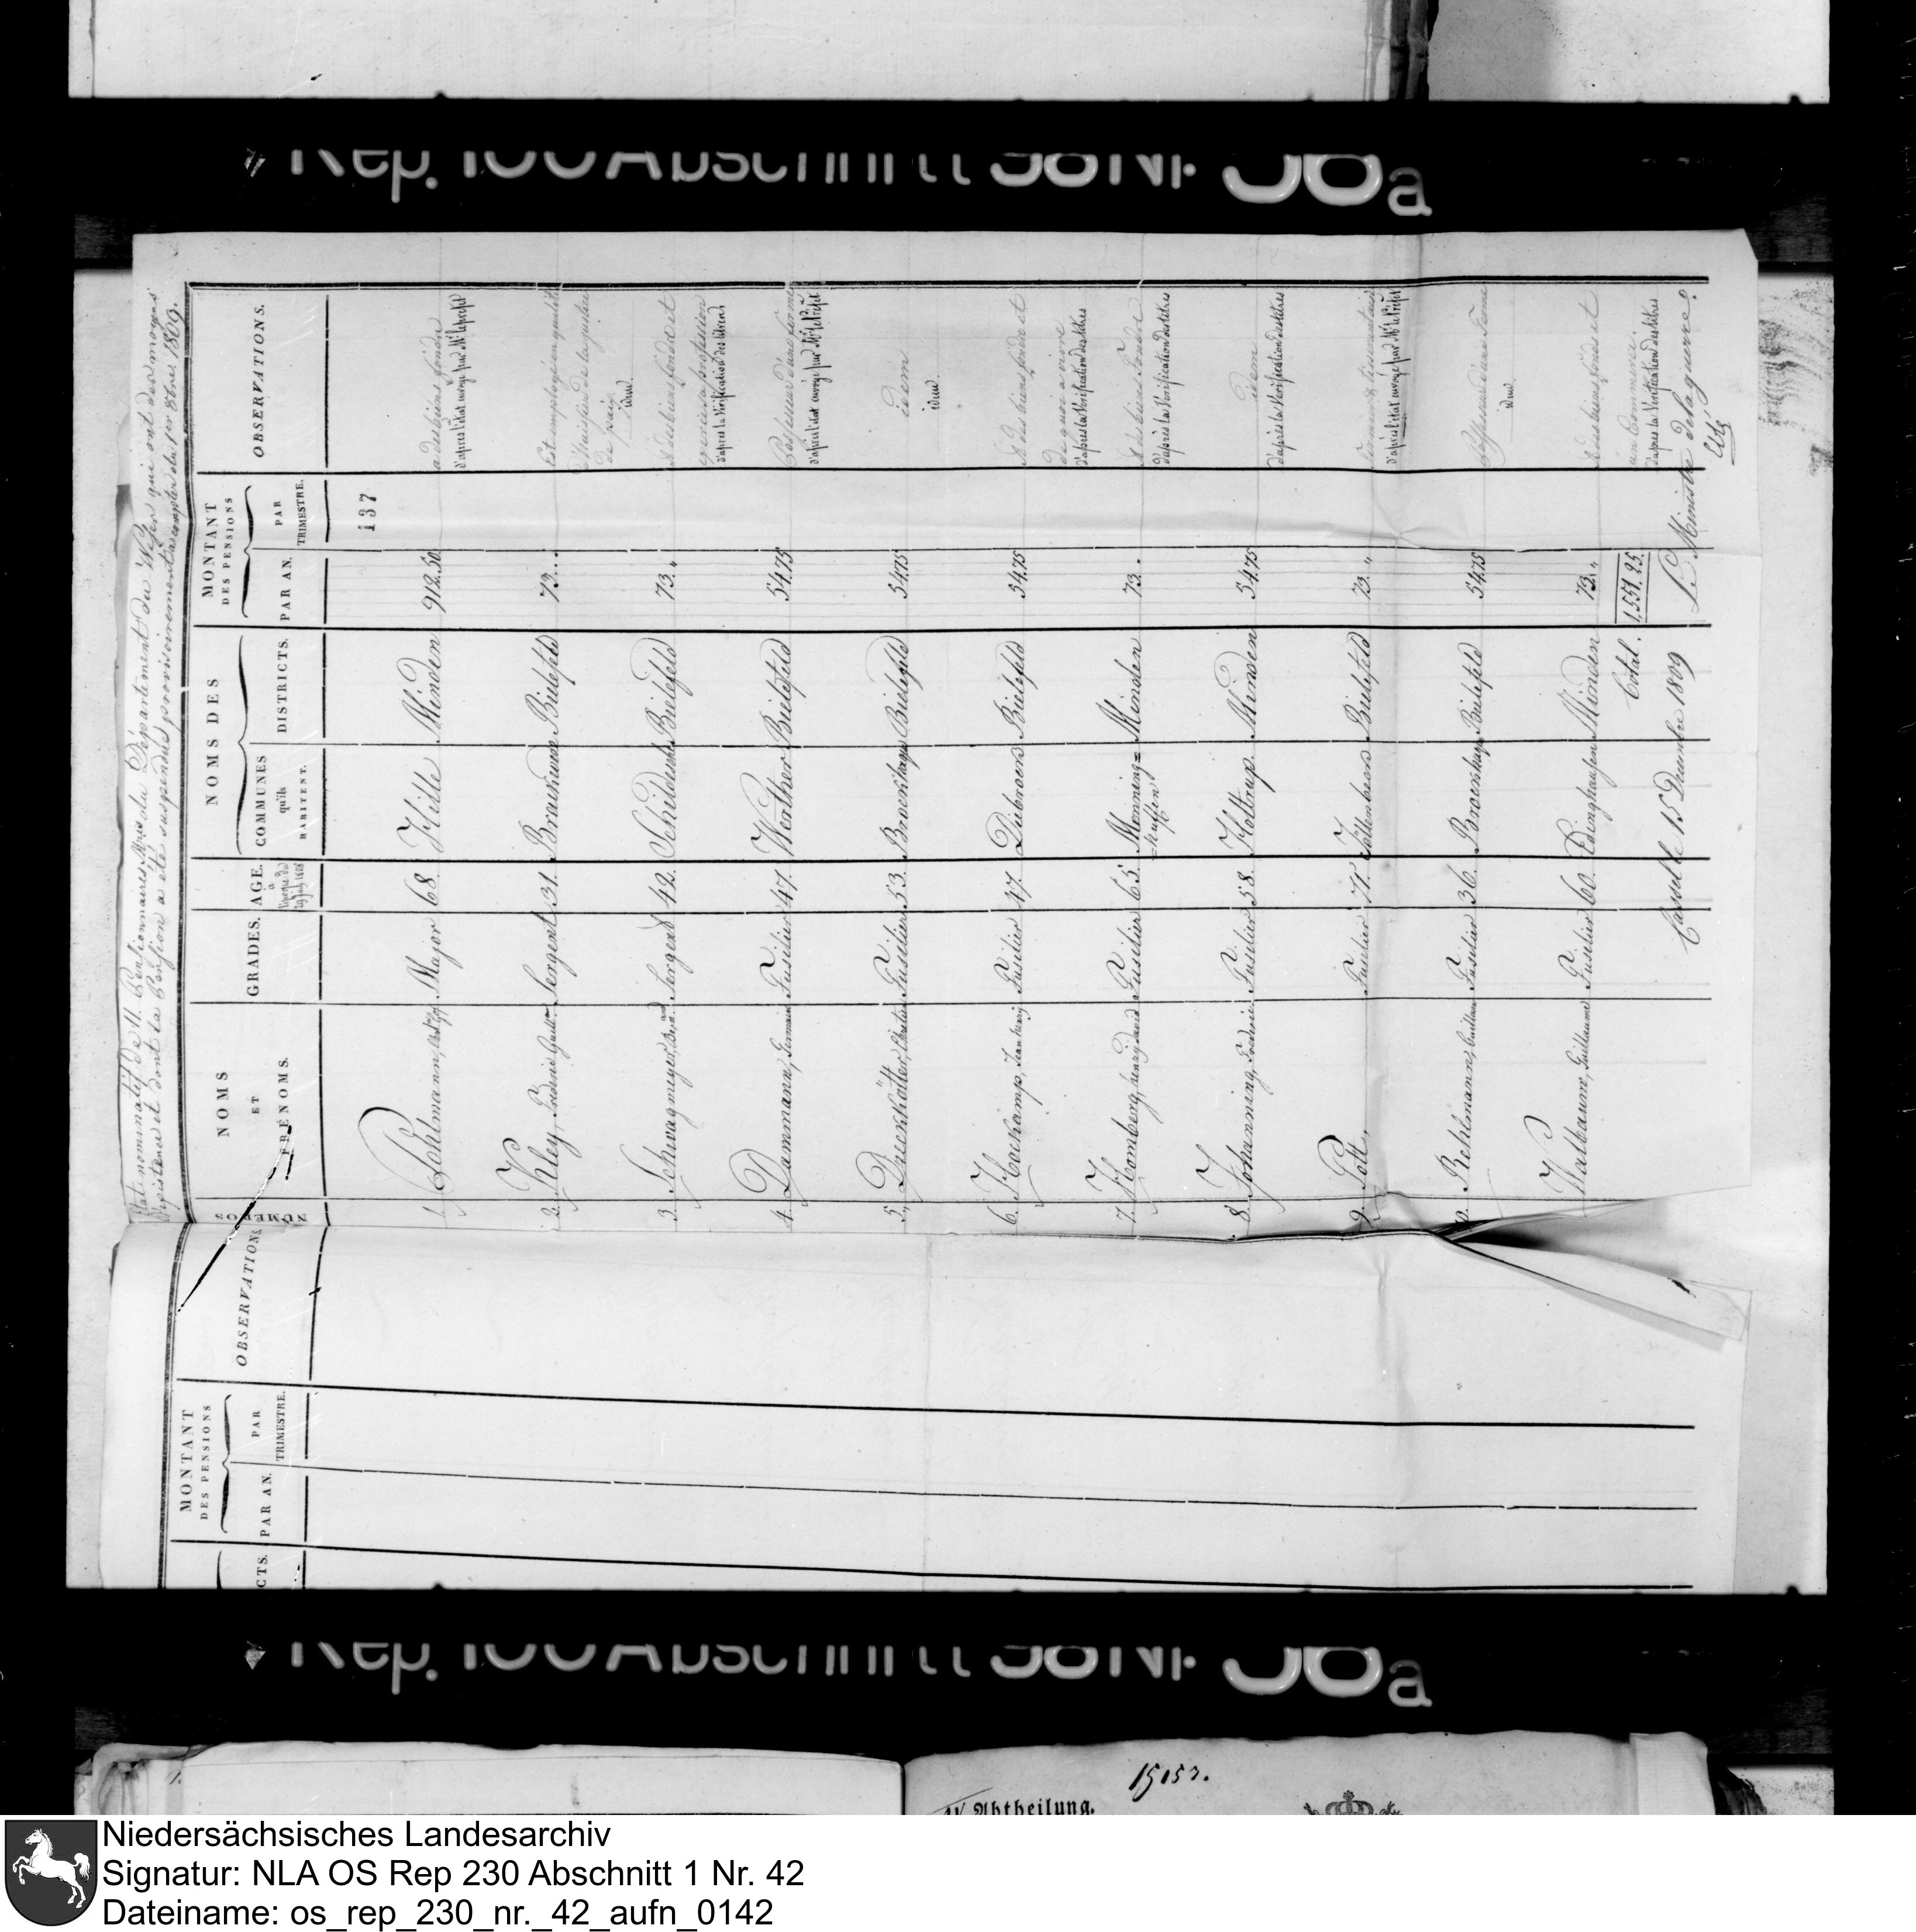 Rep. 100 Abschnitt 58 Nr. 38a
Etat nominatif de 11 Pensionnaires du Département du Weser qui ont des moyens
d'existence et dont la Pension a été suspendue provisoirement à compter du 1er 8bre. 1809.
NUMEROS
NOMS
ET
PRÉNOMS.
GRADES.
AGE.
à
l'époque du
NOMS DES
COMMUNES
qu'ils
HABITENT.
DISTRICTS.
MONTANT
DES PENSIONS
PAR AN.
PAR
TRIMESTRE.
OBSERVATIONS.
137
1. Pohlmann, Major 68. Hille Minden 912.50. a des biens fonds
d'après l'état envoyé par Mr. le prefet
2. Kley, Frederic Guill. Sergent 31. Brackwede Bielefeld 73. . . Est employé en qualité
d'huissier de la justice
de paix
idem.
3. Schwagmeyer, Sergent 42. Schildesche Bielefeld 73. „ A des biens fonds et
exerce sa profession
d'après la Vérification des titres
4. Dammann, Germain Fusilier 47. Werther Bielefeld 54.75 Possesseur d'une ferme
d'après l'état envoyé par Mr. le Prefet
5. Dreckkötter, Christian Fusilier 53. Brockhagen Bielefeld 54.75 idem
idem.
6. Hockamp, Jean Henry Fusilier 47. Diebrock Bielefeld 54.75 A des biens fonds et
de quoi à vivre
d'après la Vérification des titres
7. Homberg, Henry Fusilier 65. Menning= Minden 73. . A des biens fonds
=huffen
d'après la Vérification des titres
8. Johanning, Frederic Fusilier 58. Holtrup. Minden 54.75 idem
d'après la Vérification des titres
9. Pott, Fusilier 71. Bielefeld 73. „
d'après l'état envoyé par Mr. le Prefet
10. Rehlmann, Guillaume Fusilier 36. Brockhagen Bielefeld 54.75 Possesseur d'une Ferme
idem
Walbaum, Guillaume Fusilier 60. Edinghausen Minden 73. „ A des biens fonds et
un Commerce.
d'après la Vérification des titres
Total. 1.551.25.
Cassel le 15 Decembre 1809 Le Ministre de la guerre.
OBSERVATIONS.
MONTANT
DES PENSIONS
PAR AN.
PAR
TRIMESTRE.
CTS.
Rep. 100 Abschnitt 58 Nr. 38a
15153.
IV Abtheilung.
Niedersächsisches Landesarchiv
Signatur: NLA OS Rep 230 Abschnitt 1 Nr. 42
Dateiname: os_rep_230_nr._42_aufn_0142